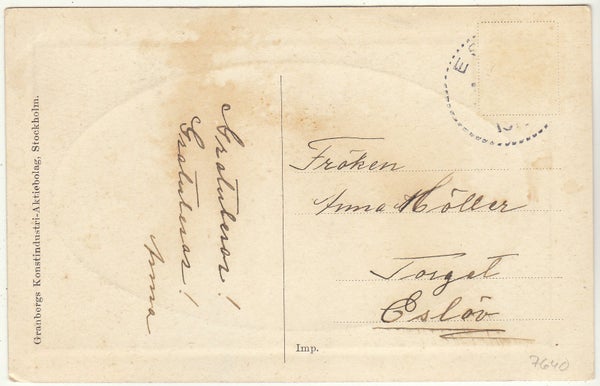 Granbergs Konstindustri-Aktiebolag, Stockholm.
Gratuleras!
Gratuleras!
Anna
Fröken
Anna Möller
Torget
Eslöv
Imp.
7640